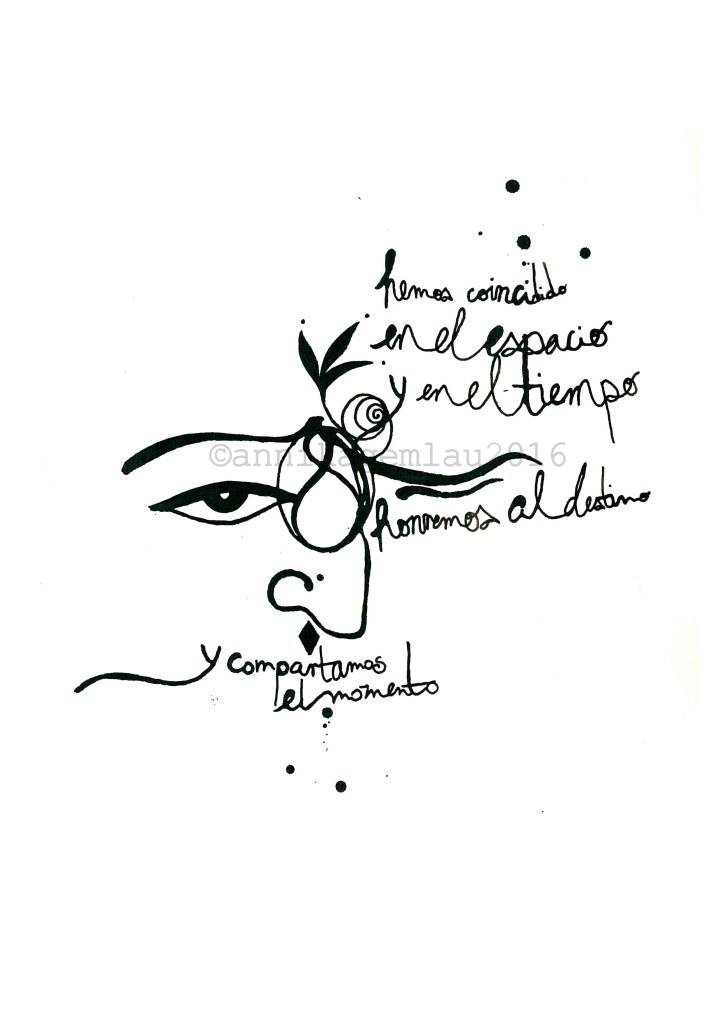 hemos coincidido
en el espacio
y en el tiempo
honremos al destino
y compartamos
el momento